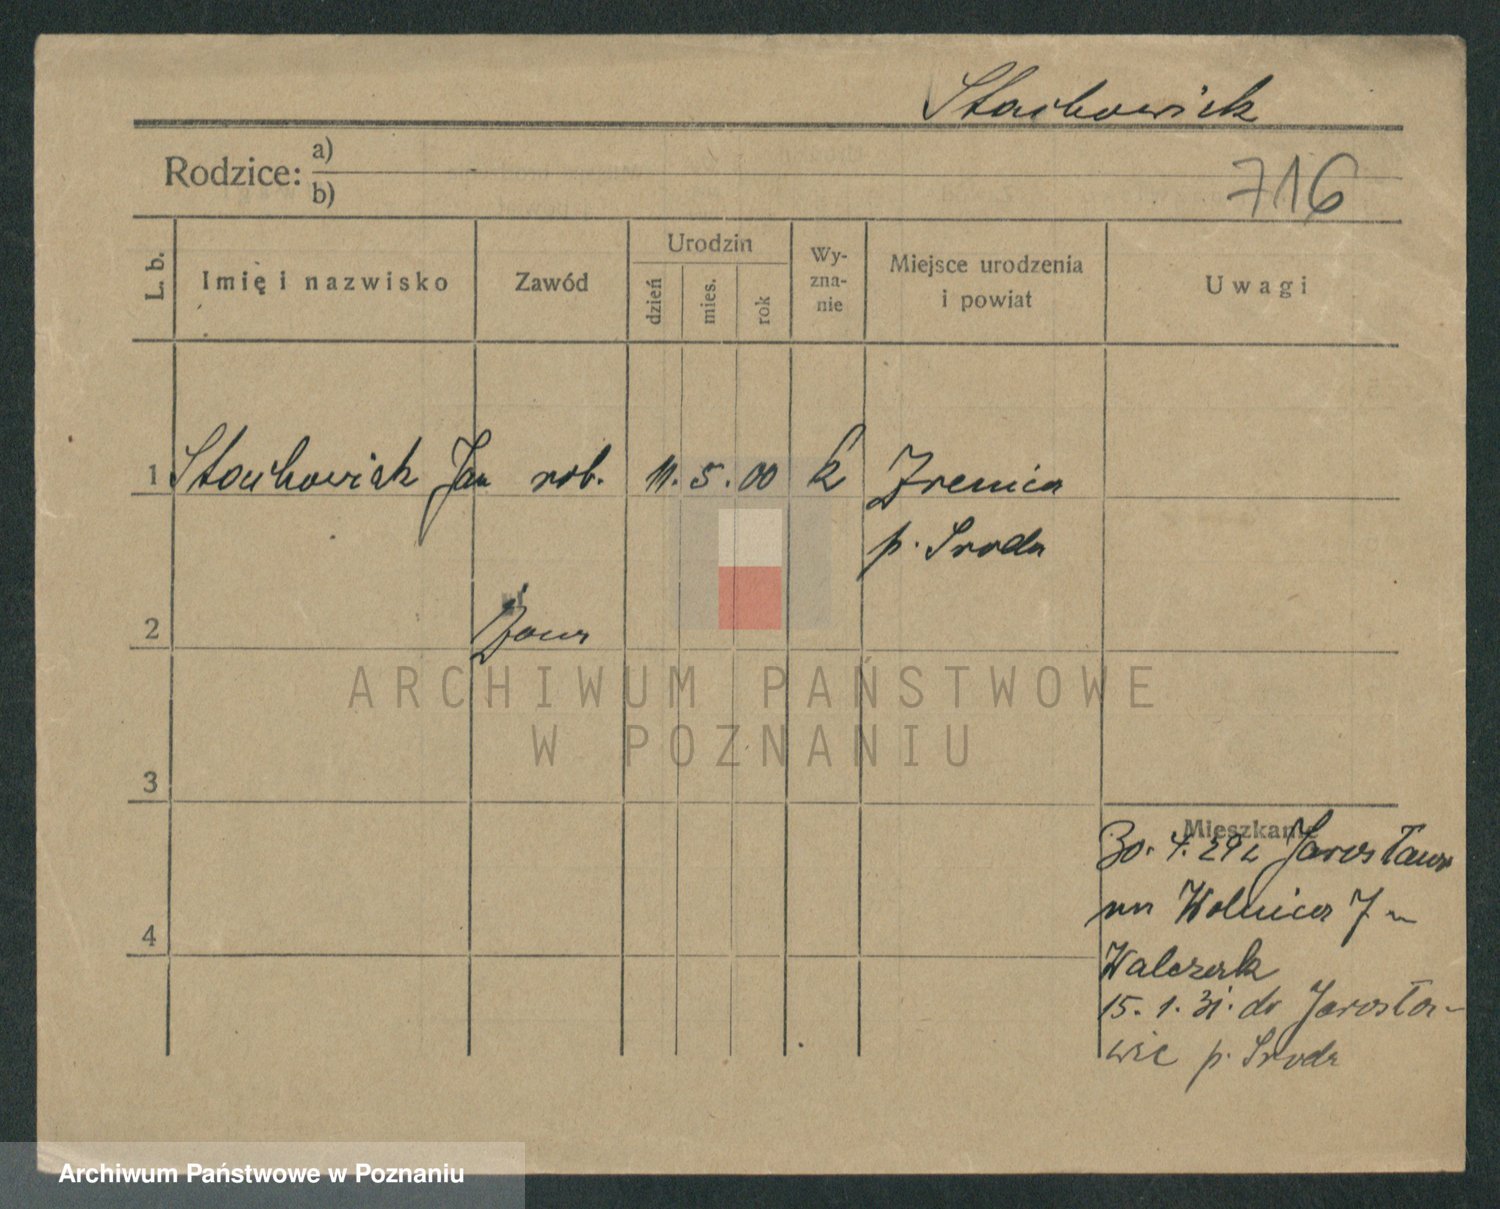 Stachowiak
Rodzice: a)
b)
716
L. b.
Imię i nazwisko
Zawód
Urodzin
dzień
mies.
rok
Wy-
zna-
nie
Miejsce urodzenia
i powiat
Uwagi
1 Stachowiak Jan rob. 11. 5. 00 k Zrenica
p. Sroda
2
3
4
Mieszkanie
30. 4. 29 z Jarosława
na Wolnica 7
Walczak
15. 1. 31. do Jarosła-
wic p. Sroda
ARCHIWUM PAŃSTWOWE
W POZNANIU
Archiwum Państwowe w Poznaniu